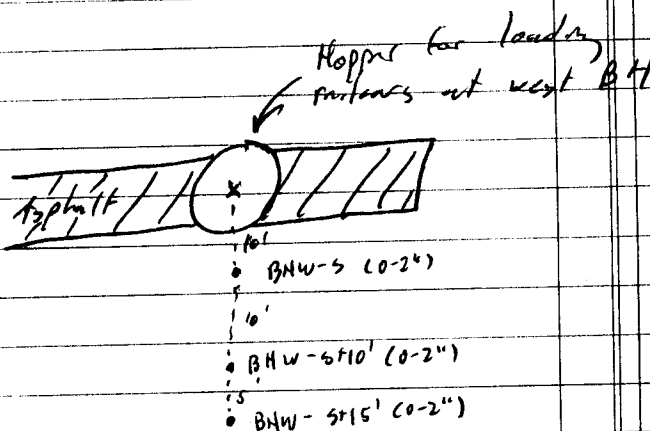 Hopper for loading
at west BH
Asphalt
x
10'
BHW-S (0-2")
10'
BHW-S+10' (0-2")
5'
BHW-S+15' (0-2")